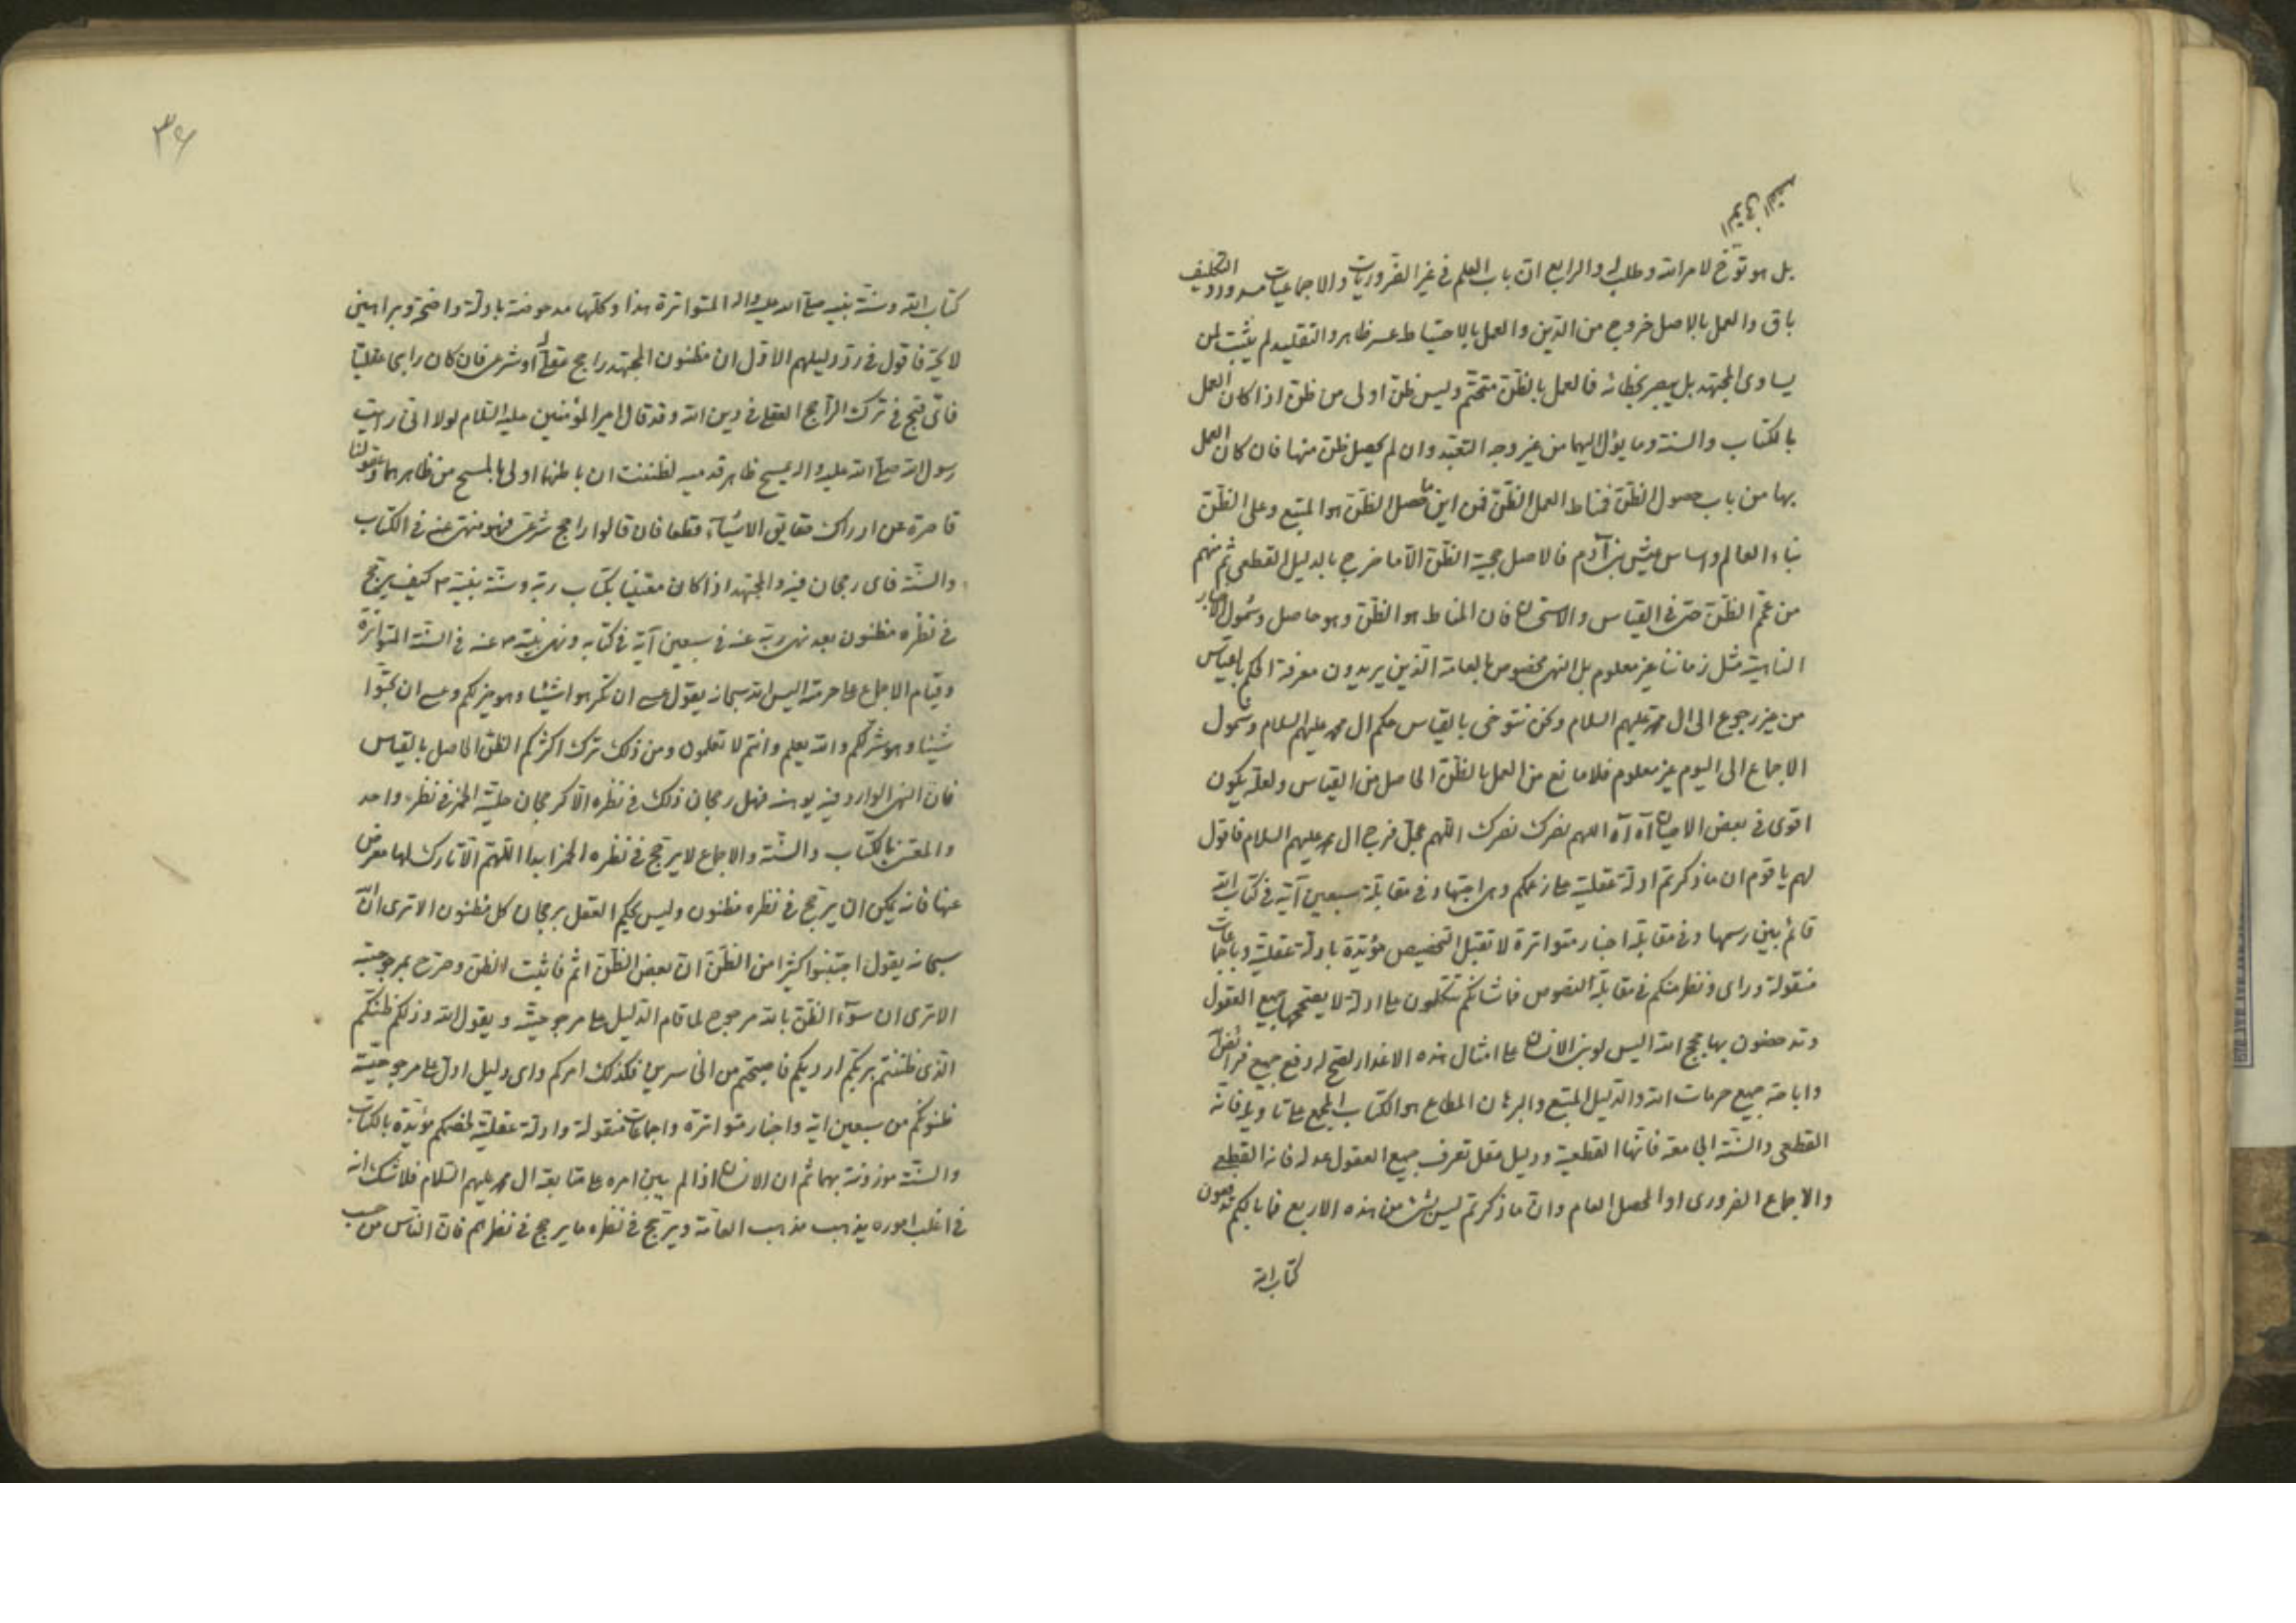 بل هو توخ لامر الله وطلب له والرابع ان باب العلم في غير الضروريات والاجماعيات مسدود والتكليف
باق والعمل بالاصل خروج من الدين والعمل بالاحتياط عسر ظاهر والتقليد لم يثبت لمن
يساوى المجتهد بل يبصر بخطائه فالعمل بالظن متحتم وليس ظن اولى من ظن اذا كان العمل
بالكتاب والسنة وما يؤل اليهما من غير وجه التعبد وان لم يحصل ظن منها فان كان العمل
بها من باب حصول الظن فمناط العمل الظن فمن اين ما حصل الظن هو المتبع وعلى الظن
بناء العالم واساس عيش بنى آدم فالاصل حجية الظن الا ما خرج بالدليل القطعى ثم منهم
من عمم الظن حتى في القياس والاستحسان فان المناط هو الظن وهو حاصل وشمول الاخبار
الناهية مثل زماننا غير معلوم بل النهى مخصوص بالعامة الذين يريدون معرفة الحكم بالقياس
من غير رجوع الى ال محمد عليهم السلام ونحن نتوخى بالقياس حكم ال محمد عليهم السلام وشمول
الاجماع الى اليوم غير معلوم فلا مانع من العمل بالظن الحاصل من القياس ولعله يكون
اقوى في بعض الاحيان آه آه اللهم نصرك نصرك اللهم عجل فرج ال محمد عليهم السلام فاقول
لهم يا قوم ان ما ذكرتم ادلة عقلية على زعمكم وهى اجتهاد في مقابلة سبعين آية في كتاب الله
قائم بين رسمها وفي مقابلة اخبار متواترة لا تقبل التخصيص مؤيدة بادلة عقلية وباجماعات
منقولة وراى ونظر منكم في مقابلة النصوص فما شانكم تتكلون على ادلة لا يصححها جميع العقول
وتدحضون بها حجج الله اليس لو بنى الانسان على امثال هذه الاعذار لصح له دفع جميع فرائض الله
واباحة جميع حرمات الله والدليل المتبع والبرهان المطاع هو الكتاب المجمع على تاويله فانه
القطعى والسنة الجامعة فانها القطعية ودليل عقل تعرف جميع العقول عدله فانه القطعى
والاجماع الضرورى او المحصل العام وان ما ذكرتم ليس بشئ من هذه الاربع فما بالكم تدعون
كتاب الله
٣٤
كتاب الله وسنة نبيه صلى الله عليه واله المتواترة هذا وكلها مدحوضة بادلة واضحة وبراهين
لائحة فاقول في رد دليلهم الاول ان مظنون المجتهد راجح عقلى او شرعى فان كان راجحا عقليا
فاى قبح في ترك الراجح العقلى في دين الله وقد قال امير المؤمنين عليه السلام لولا انى رايت
رسول الله صلى الله عليه واله يمسح ظاهر قدميه لظننت ان باطنهما اولى بالمسح من ظاهرهما وعقولنا
قاصرة عن ادراك حقايق الاشياء قطعا فان قالوا راجح شرعى فهو منهى عنه في الكتاب
والسنة فاى رجحان فيه والمجتهد اذا كان مقتفيا بكتاب ربه وسنة نبيه ص كيف يرجح
في نظره مظنون بعد نهى ربه عنه في سبعين آية في كتابه ونهى نبيه ص عنه في السنة المتواترة
وقيام الاجماع على حرمته اليس الله سبحانه يقول عسى ان تكرهوا شيئا وهو خير لكم وعسى ان تحبوا
شيئا وهو شر لكم والله يعلم وانتم لا تعلمون ومن ذلك ترك اكثركم الظن الحاصل بالقياس
فان النهى الوارد فيه يوهنه فهل رجحان ذلك في نظره الا كرجحان حلية الخمر في نظره واحد
والمعتنى بالكتاب والسنة والاجماع لا يرجح في نظره الخمر ابدا اللهم الا تارك لها معرض
عنها فانه يمكن ان يرجح في نظره مظنون وليس يحكم العقل برجحان كل مظنون الا ترى ان الله
سبحانه يقول اجتنبوا كثيرا من الظن ان بعض الظن اثم فاثبت الظن وصرح بمرجوحيته
الا ترى ان سوء الظن بالله مرجوح لما قام الدليل على مرجوحيته ويقول الله وذلكم ظنكم
الذى ظننتم بربكم ارديكم فاصبحتم من الخاسرين فكذلك امركم واى دليل ادل على مرجوحية
ظنونكم من سبعين اية واخبار متواترة واجماعات منقولة وادلة عقلية لخصمكم مؤيدة بالكتاب
والسنة موزونة بهما ثم ان الانسان اذا لم يبن امره على متابعة ال محمد عليهم السلام فلا شك انه
في اغلب اموره يذهب مذهب العامة ويرجح في نظره ما يرجح في نظرهم فان الناس من حسب